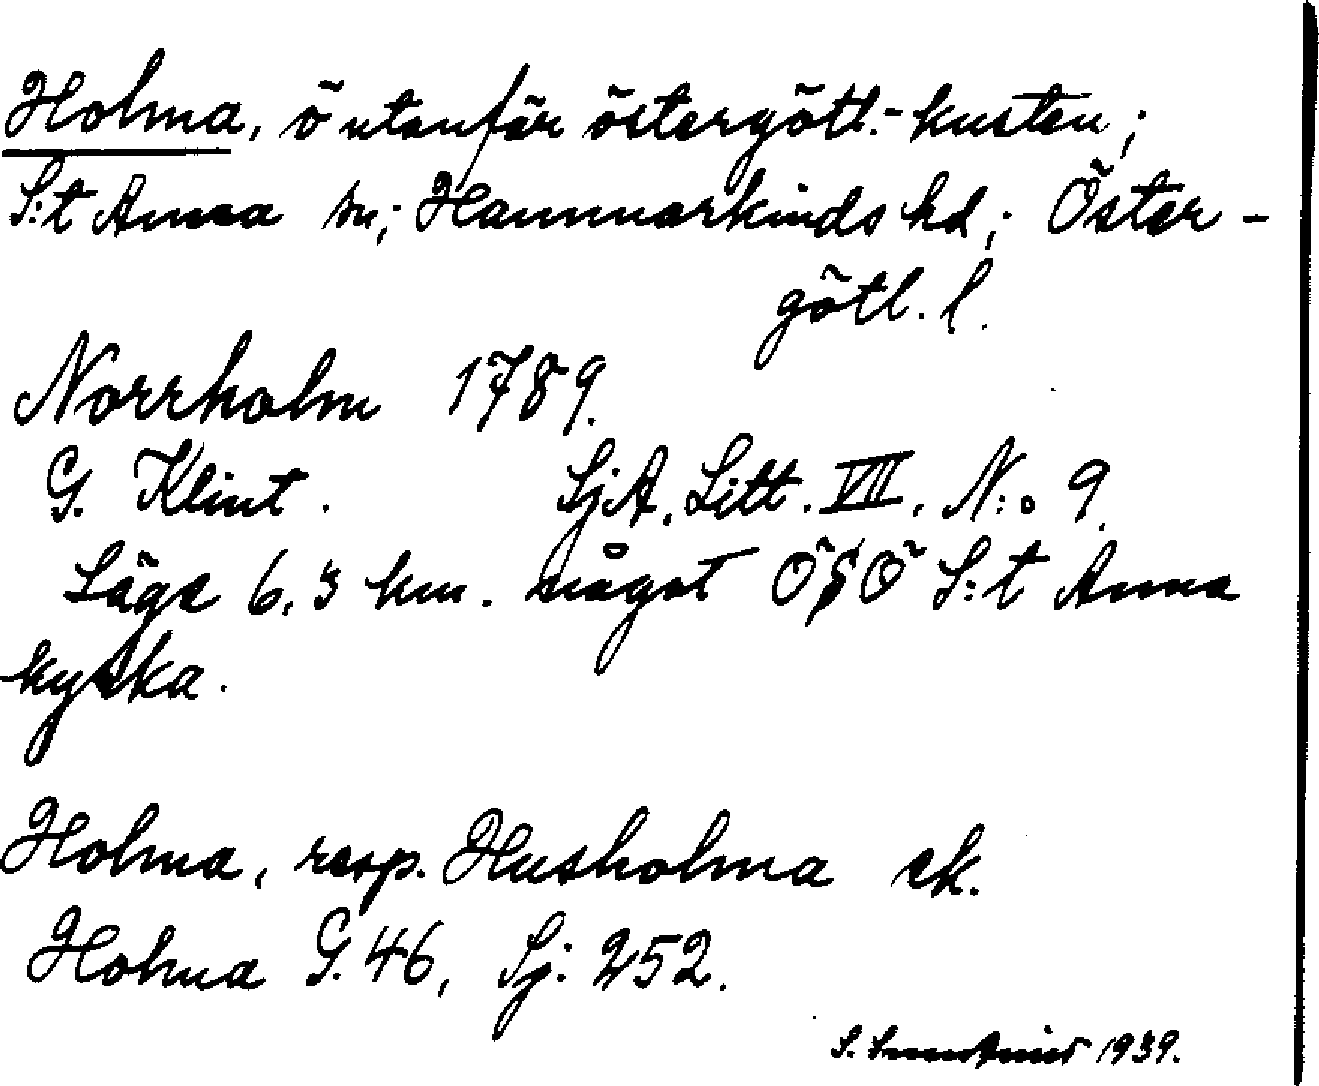 Holma, ö utanför östergötl.-kusten;
S:t Anna sn; Hammarkinds hd; Öster-
götl. l.
Norrholm 1789.
G. Klint. SjA. Litt. VIII. N:o 9.
Läge 6,3 km. något ÖSÖ S:t Anna
kyrka.
Holma, resp. Husholma ek.
Holma G. 46, Sj: 252.
S. 1939.